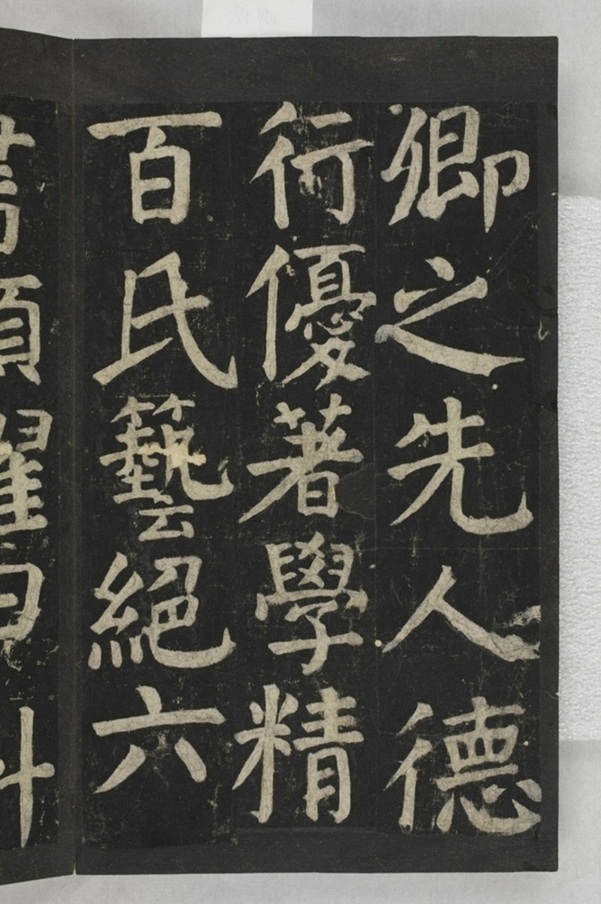 卿之先人德
行優著學精
百氏藝絕六